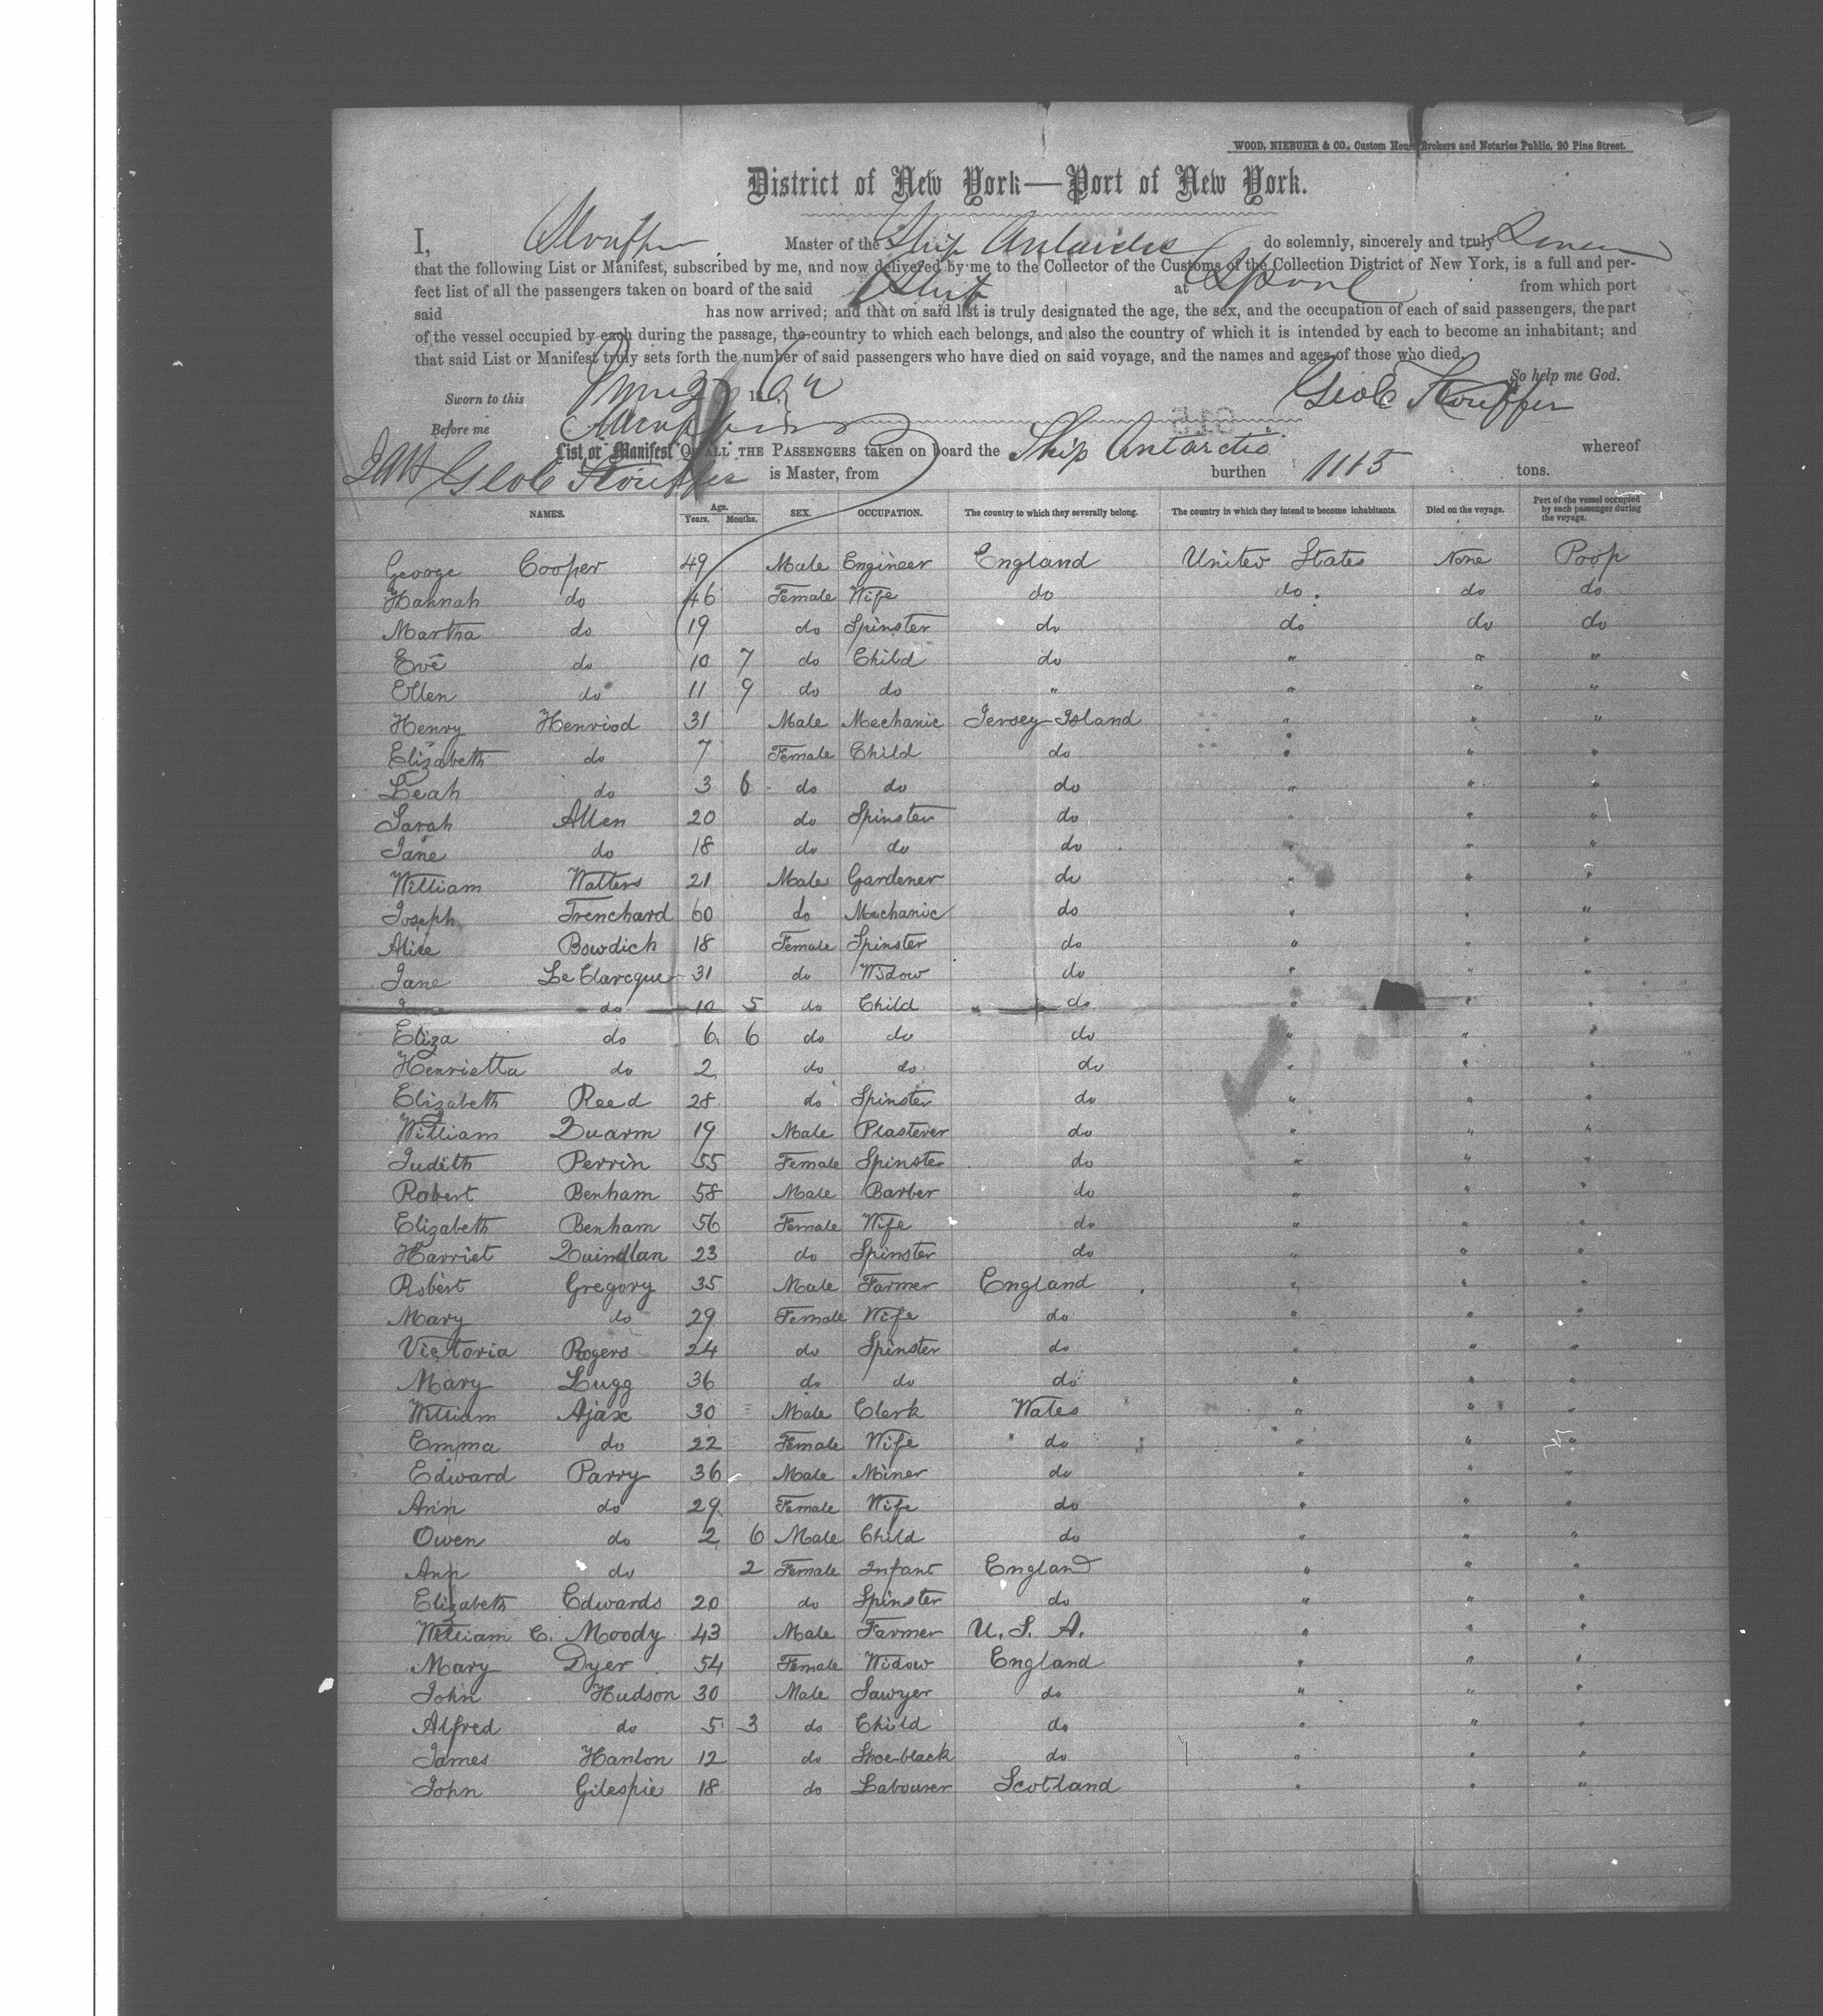 WOOD, NIEBUHR & CO., Custom House Brokers and Notaries Public, 20 Pine Street.
District of New York—Port of New York.
I, Stouffer Master of the Ship Antarctic do solemnly, sincerely and truly
that the following List or Manifest, subscribed by me, and now delivered by me to the Collector of the Customs of the Collection District of New York, is a full and per-
fect list of all the passengers taken on board of the said Ship at Lpool from which port
said has now arrived; and that on said list is truly designated the age, the sex, and the occupation of each of said passengers, the part
of the vessel occupied by each during the passage, the country to which each belongs, and also the country of which it is intended by each to become an inhabitant; and
that said List or Manifest truly sets forth the number of said passengers who have died on said voyage, and the names and ages of those who died.
So help me God.
Sworn to this 18
Geo C Stouffer
Before me
List or Manifest OF ALL THE PASSENGERS taken on board the Ship Antarctic whereof
Geo C Stouffer is Master, from burthen 1115 tons.
NAMES. Age. Years. Months. SEX. OCCUPATION. The country to which they severally belong. The country in which they intend to become inhabitants. Died on the voyage. Part of the vessel occupied by each passenger during the voyage.
George Cooper 49 Male Engineer England United States None Poop
Hannah do 46 Female Wife do do do do
Martha do 19 do Spinster do do do do
Eve do 10 7 do Child do " " "
Ellen do 11 9 do do " " " "
Henry Henriod 31 Male Mechanic Jersey Island " " "
Elizabeth do 7 Female Child do " " "
Leah do 3 6 do do do " " "
Sarah Allen 20 do Spinster do " " "
Jane do 18 do do do " " "
William Walters 21 Male Gardener do " " "
Joseph Trenchard 60 do Mechanic do " " "
Alice Bowdich 18 Female Spinster do " " "
Jane Le Clarcque 31 do Widow do " " "
Jane do 10 5 do Child do " " "
Eliza do 6 6 do do do " " "
Henrietta do 2 do do do " " "
Elizabeth Reed 28 do Spinster do " " "
William Quarm 19 Male Plasterer do " " "
Judith Perrin 55 Female Spinster do " " "
Robert Benham 58 Male Barber do " " "
Elizabeth Benham 56 Female Wife do " " "
Harriet Quindlan 23 do Spinster do " " "
Robert Gregory 35 Male Farmer England " " "
Mary do 29 Female Wife do " " "
Victoria Rogers 24 do Spinster do " " "
Mary Lugg 36 do do do " " "
William Ajax 30 Male Clerk Wales " " "
Emma do 22 Female Wife do " " "
Edward Parry 36 Male Miner do " " "
Ann do 29 Female Wife do " " "
Owen do 2 6 Male Child do " " "
Ann do 2 Female Infant England " " "
Elizabeth Edwards 20 do Spinster do " " "
William C. Moody 43 Male Farmer U. S. A. " " "
Mary Dyer 54 Female Widow England " " "
John Hudson 30 Male Sawyer do " " "
Alfred do 5 3 do Child do " " "
James Hanlon 12 do Shoe-black do " " "
John Gilespie 18 do Labourer Scotland " " "